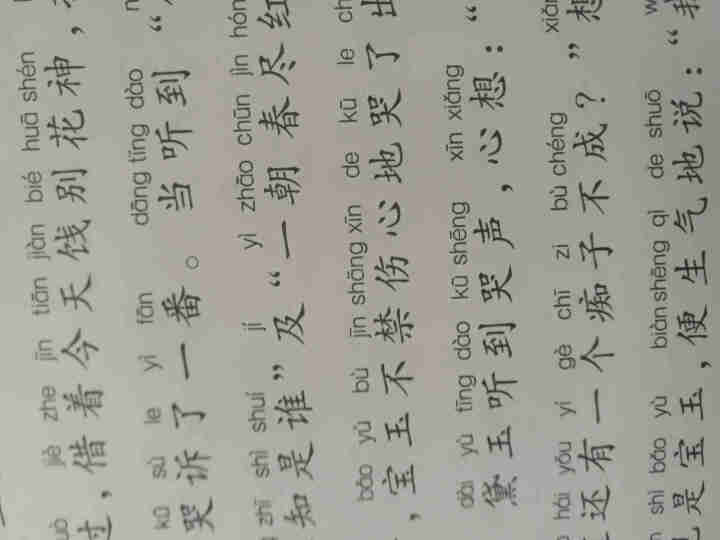 jiè zhe jīn tiān jiàn bié huā shén
过，借着今天饯别花神，
kū sù le yì fān dāng tīng dào
哭诉了一番。当听到“
zhī shì shuí jí yì zhāo chūn jìn
知是谁”及“一朝春尽红
bǎo yù bù jīn shāng xīn de kū le
，宝玉不禁伤心地哭了出
dài yù tīng dào kū shēng xīn xiǎng
黛玉听到哭声，心想：“
hái yǒu yí gè chī zi bù chéng
还有一个痴子不成？”想
shì bǎo yù biàn shēng qì de shuō
见是宝玉，便生气地说：“我